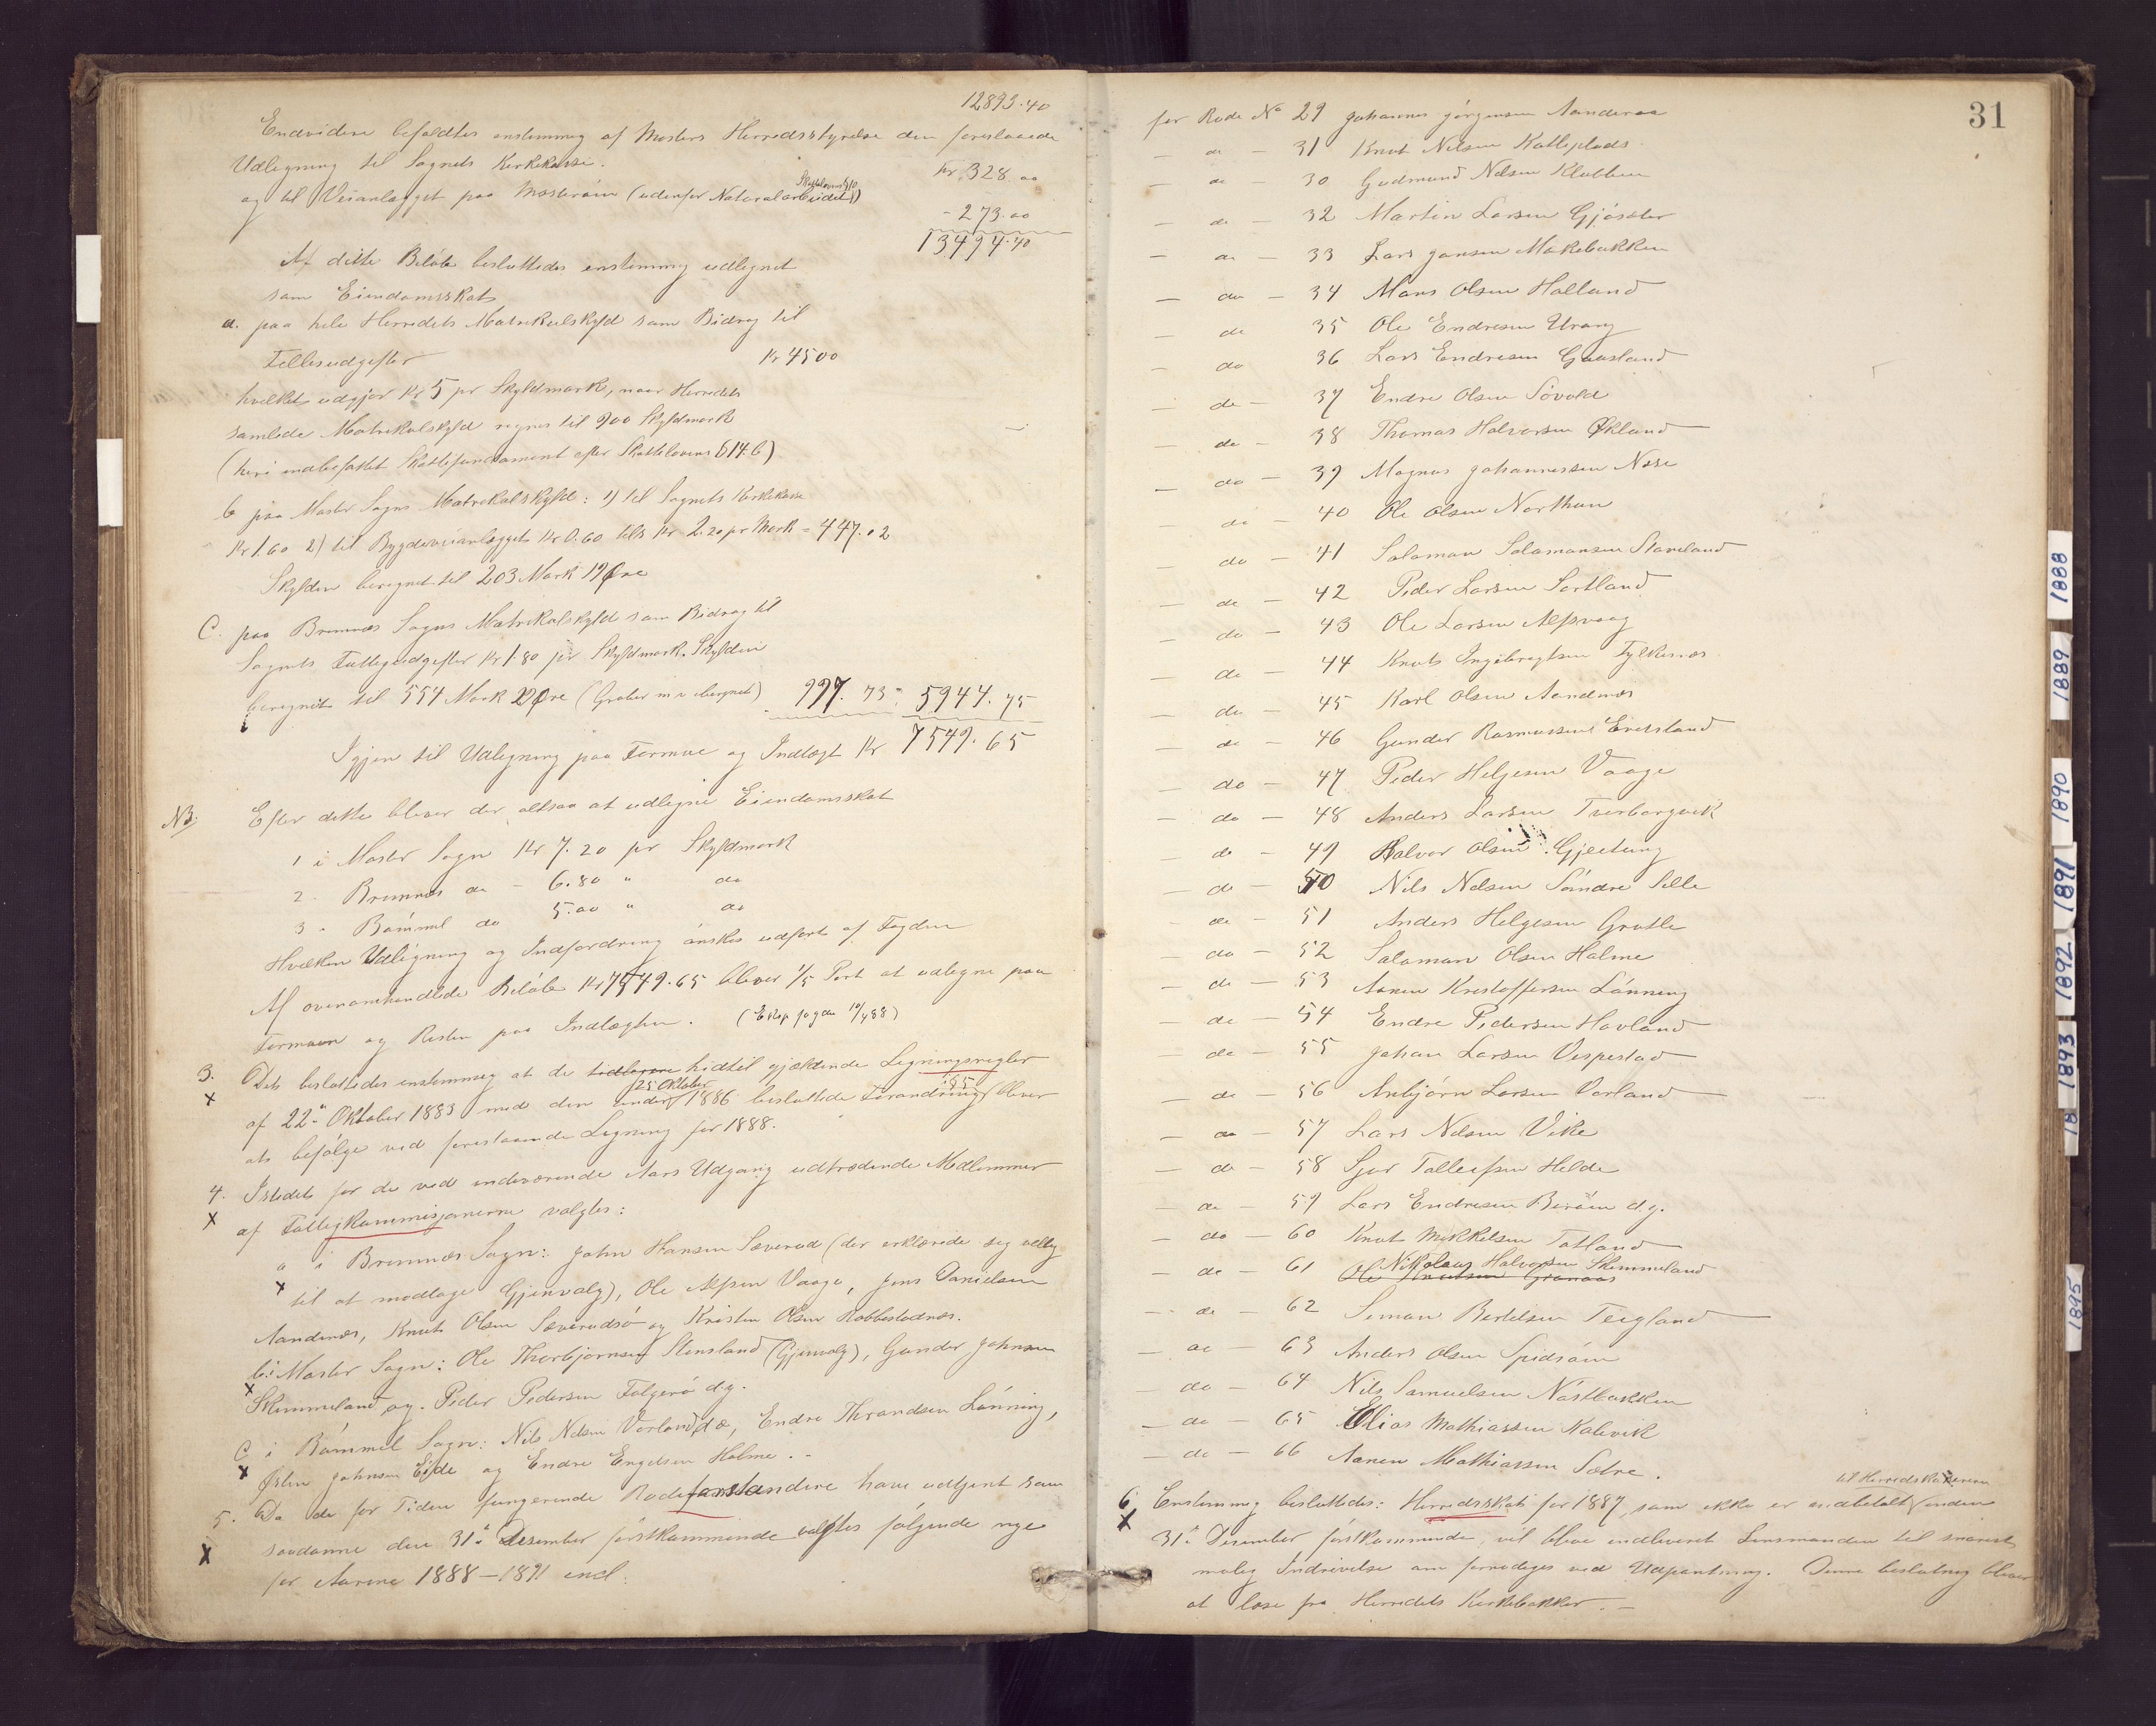 12893.40
Endvidere befaldtes enstemmig af Mosters Herredsstyrelse den foreslaaede
Udlegning til Sagnets Kirkekasse. Kr. 328.00
og til Veianlægget paa Mosterøen (udenfor Naturalarbeidet) Skattelovens § 10 - 273.00
13494.40
Af dette Beløb besluttedes enstemmig udlignet
som Eiendomsskat
a. paa hele Herredets Matrikulskyld som Bidrag til
Fellesudgifter Kr 4500
hvilket udgjør Kr 5 pr Skyldmark, naar Herredets
samlede Matrikulskyld regnes til 900 Skyldmark
(heri indbefattet Skattefundament efter Skattelovens § 14.b)
b paa Moster Sogns Matrikulskyld: 1) til Sognets Kirkekasse
Kr 1.60 2) til Bygdeveianlægget Kr 0.60 tils Kr 2.20 pr Mark = 447.02
Skylden beregnet til 203 Mark 19 Øre
C. paa Bremnæs Sogns Matrikulskyld som Bidrag til
Sognets Fattigudgifter Kr 1.80 pr Skyldmark. Skylden
beregnet til 554 Mark 29 Øre (Gruber m v iberegnet) 997.73 = 5944.75
Igjen til Udligning paa Formue og Indtægt Kr 7549.65
NB. Efter dette bliver der altsaa at udligne Eiendomsskat
1 i Moster Sogn Kr 7.20 pr Skyldmark
2 - Bremnæs do - 6.80 " do
3 - Bømmel do 5.00 " do
Hvilken Udligning og Indfordring ønskes udført af Fogden
Af ovenomhandlede Beløb Kr 7549.65 bliver 1/5 Part at udligne paa
Formuen og Resten paa Indtægten. (Exp fogden 10/1 88)
3. Det besluttedes enstemmig at de tidligere hidtil gjældende Ligningsregler
x af 22de Oktober 1883 med den under 25 Oktober 1886 besluttede Forandring i § 5 bliver
at befølge ved forestaaende Ligning for 1888.
4. Istedet for de ved indeværende Aars Udgang udtrædende Medlemmer
x af Fattigkommisjonerne valgtes:
a i Bremnæs Sogn: John Hansen Sæverud (der erklærede sig villig
x til at modtage Gjenvalg), Ole Alfsen Vaage, Jens Danielsen
Aandenæs, Knut Olsen Sæverudsø og Kristen Olsen Robbestadnæs.
b i Moster Sogn: Ole Thorbjørnsen Stensland (Gjenvalg), Gunder Johnsen
x Skimmeland og Peder Pedersen Folgerø d.y.
C i Bømmel Sogn: Nils Nelsen Vorland d.æ, Endre Thrandsen Lønning,
x Østen Johnsen Eide og Endre Engelsen Holme.
5. Da de for Tiden fungerende Rodeforstandere have udtjent som
x saadanne den 31te Desember førstkommende valgtes følgende nye
for Aarene 1888–1891 incl:
31
for Rode No 29 Johannes Jørgensen Aanderaa
— do — 31 Knut Nilsen Katleplads
— do — 30 Gudmund Nelsen Klubben
— do — 32 Martin Larsen Gjøsæter
— do — 33 Lars Jansen Mokebakken
— do — 34 Mons Olsen Halland
— do 35 Ole Endresen Urang
— do 36 Lars Endresen Gaasland
— do — 37 Endre Olsen Søvold
— do — 38 Thomas Halvorsen Økland
— do — 39 Magnus Johannessen Næse
— do — 40 Ole Olsen Northun
— do — 41 Salamon Salamonsen Stavland
— do — 42 Peder Larsen Sortland
— do — 43 Ole Larsen Alfsvaag
— do — 44 Knut Ingebregtsen Fylkesnæs
— do — 45 Karl Olsen Aandnæs
— do — 46 Gunder Rasmussen Eidesland
— do — 47 Peder Helgesen Vaage
— do — 48 Anders Larsen Tverborgvik
— do — 49 Halvor Olsen Gjeitung
— do — 50 Nils Nelsen Søndre Selle
— do — 51 Anders Helgesen Grutle
— do — 52 Salamon Olsen Holme
— do — 53 Aanen Kristoffersen Lønning
— do — 54 Endre Pedersen Hovland
— do — 55 Johan Larsen Vespestad
— do — 56 Anbjørn Larsen Vorland
— do — 57 Lars Nelsen Vike
— do — 58 Sjur Tolleifsen Helde
— do — 59 Lars Endresen Berøen d.y.
— do — 60 Knut Mikkelsen Totland
— do — 61 Nikolaus Halvorsen Skimmeland
— do — 62 Simon Bertelsen Teigland
— do — 63 Anders Olsen Spidsøen
— do — 64 Nils Samuelsen Nøstbakken
— do — 65 Elias Mathiassen Kalevik
— do — 66 Aanen Mathiassen Sætre.
6. Enstemmig besluttedes: Herredsskat for 1887, som ikke er indbetalt til Herredskassereren inden
x 31te Desember førstkommende, vil blive indleveret Lensmanden til snarest
mulig Indrivelse om fornødiges ved Udpantning. Denne beslutning bliver
at læse fra Herredets Kirkebakker. —
1888
1889
1890
1891
1892
1893
18
1895